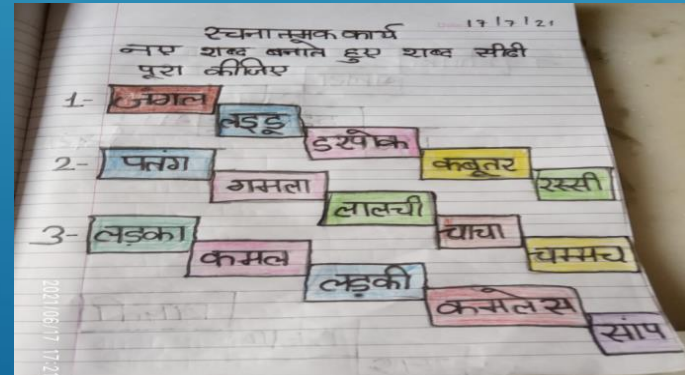 रचनात्मक कार्य 17/7/21
नए शब्द बनाते हुए शब्द सीढी
पूरा कीजिए
1- जंगल लड्डू डरपोक कबूतर रस्सी
2- पतंग गमला लालची चाचा चम्मच
3- लड़का कमल लड़की कमलेस सांप
2021/06/17 17:2